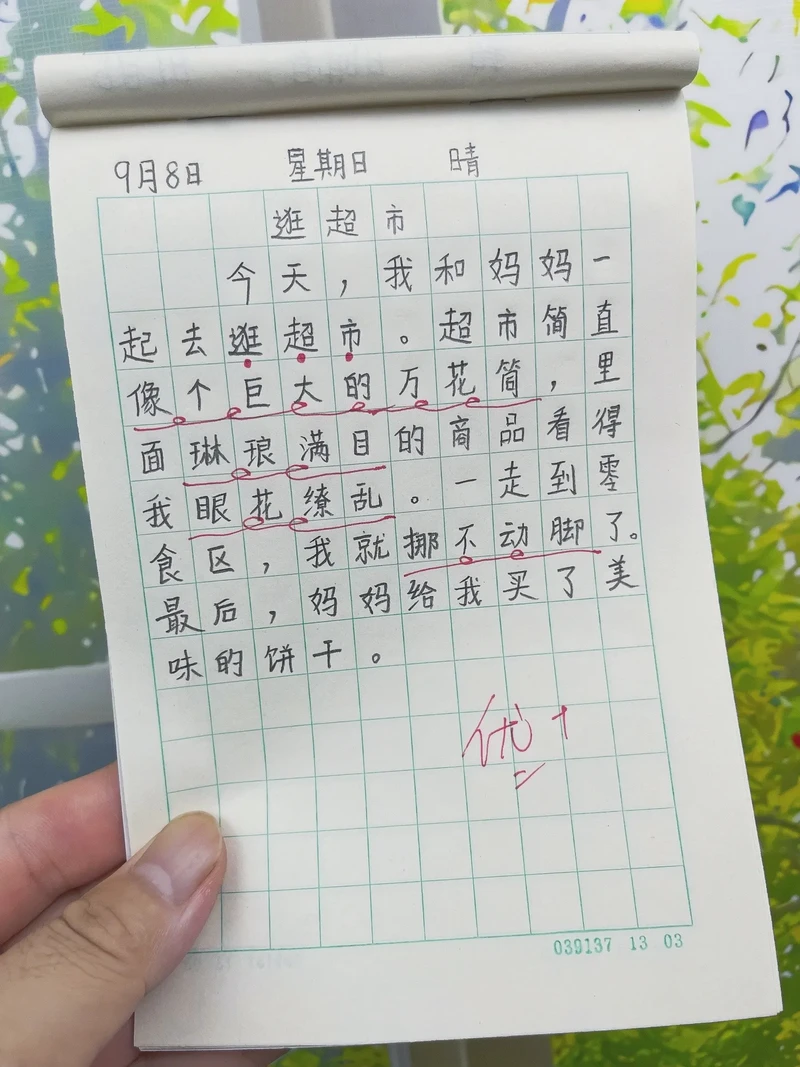 9月8日 星期日 晴
逛超市
今天，我和妈妈一
起去逛超市。超市简直
像个巨大的万花简，里
面琳琅满目的商品看得
我眼花缭乱。一走到零
食区，我就挪不动脚了。
最后，妈妈给我买了美
味的饼干。
优+
039137 13 03